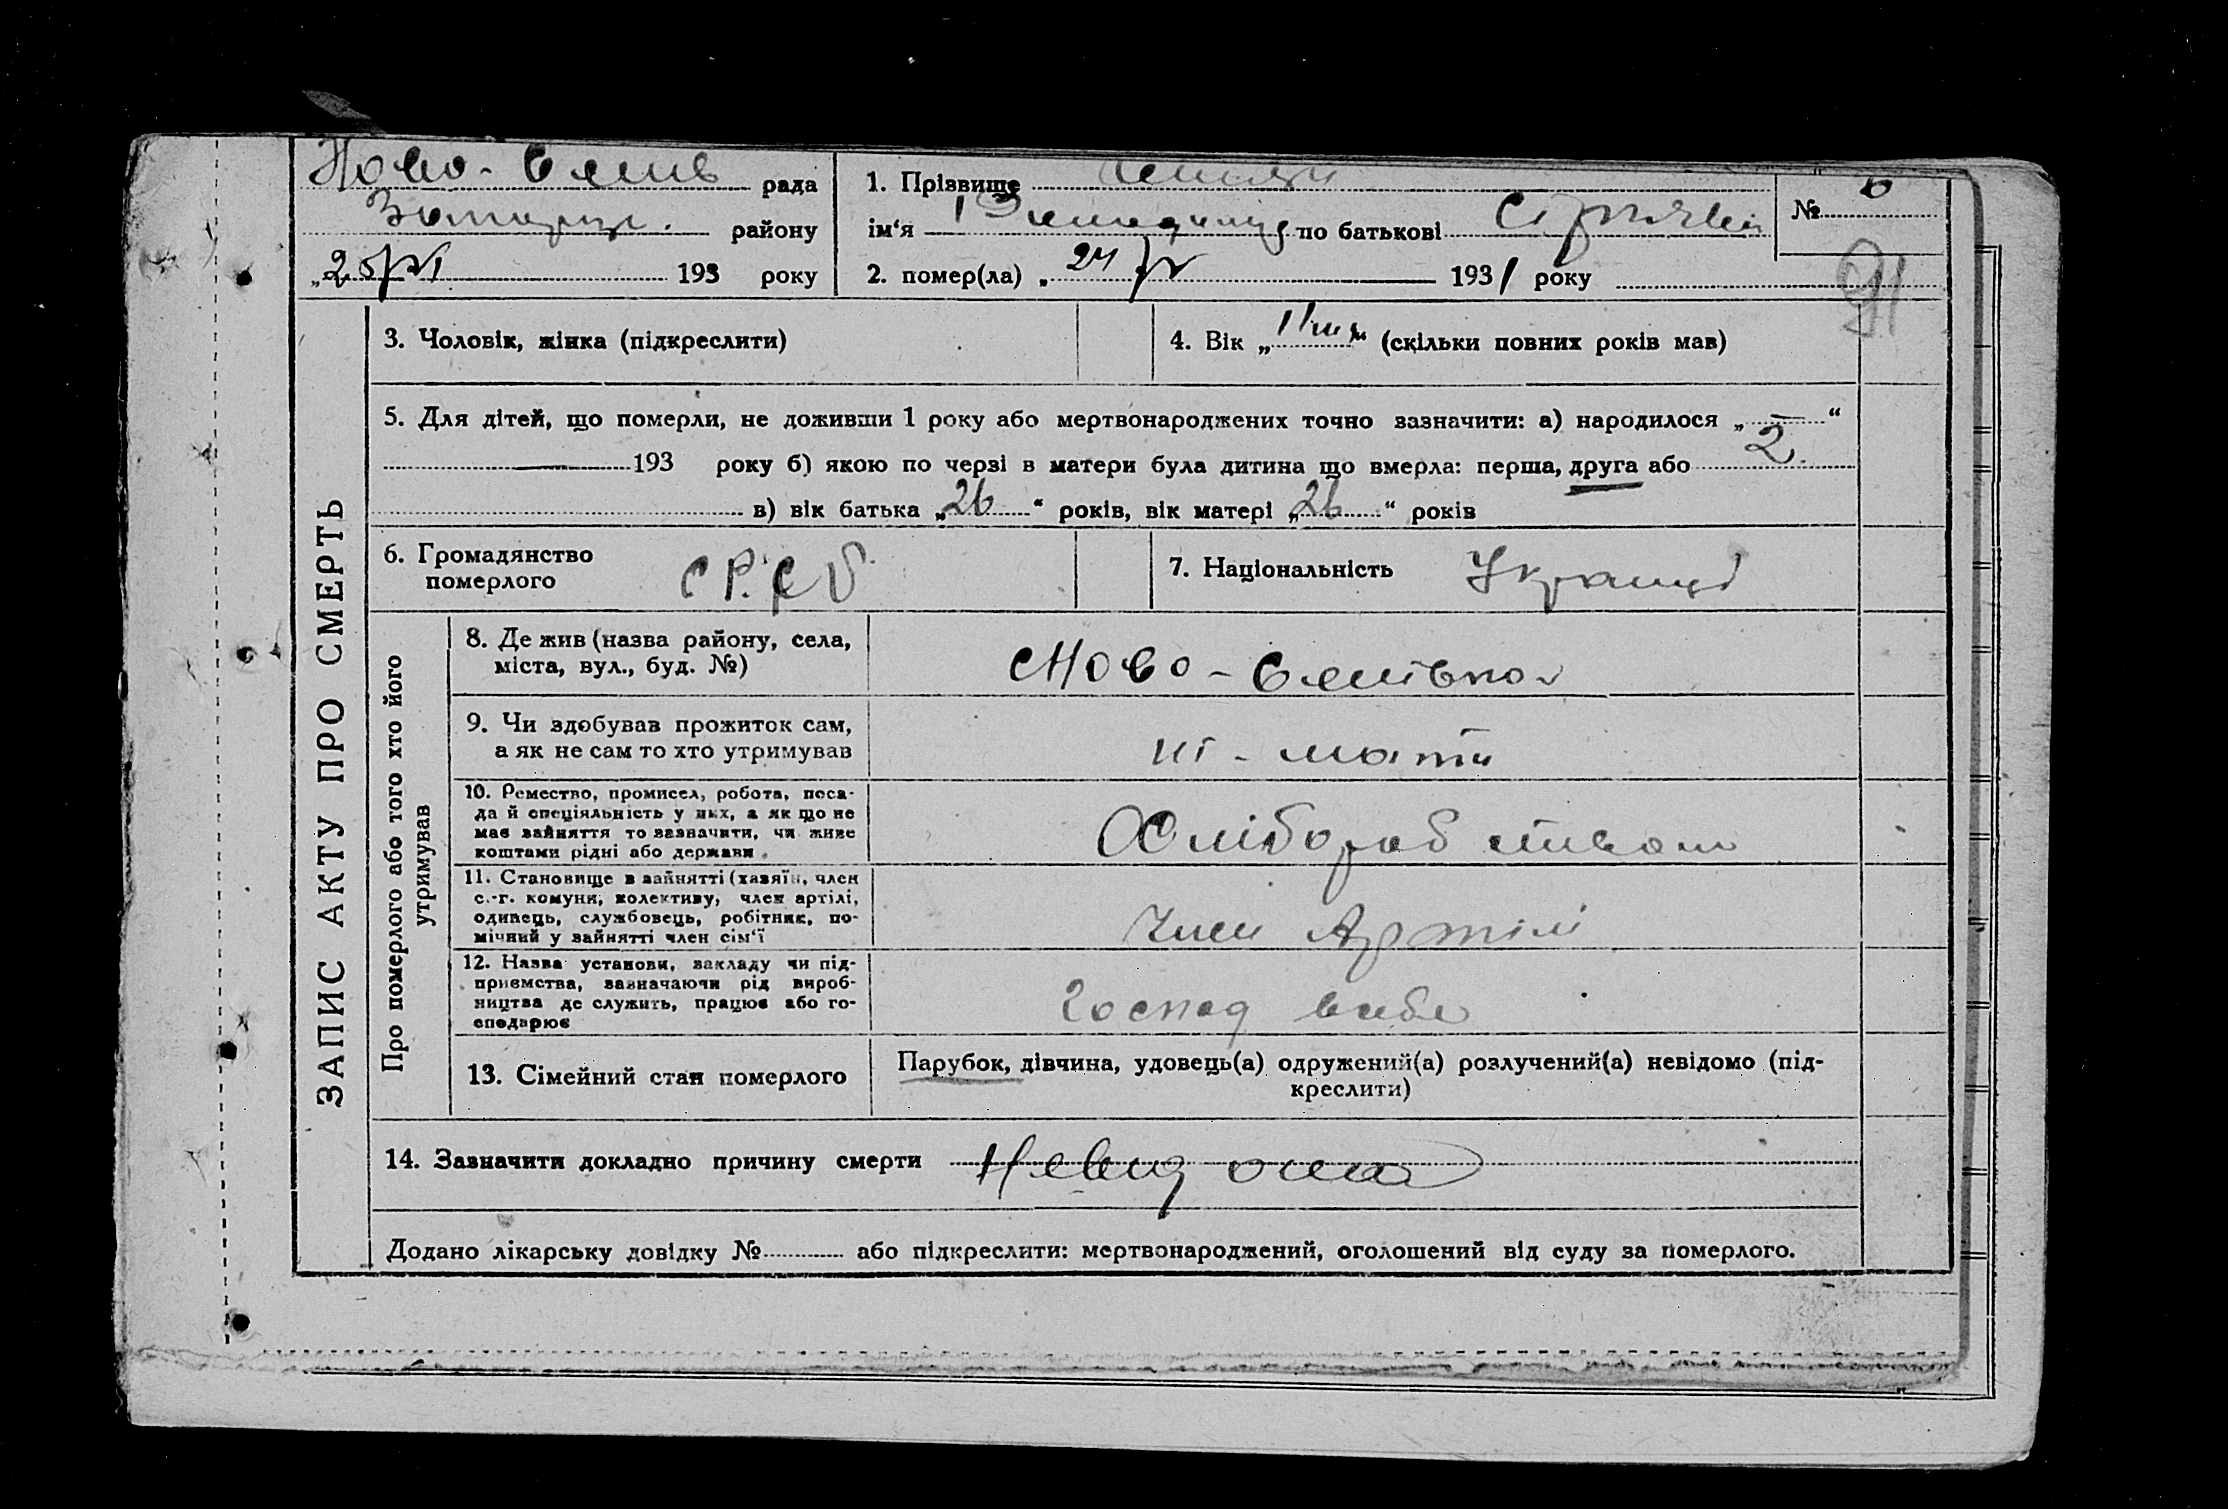 Ново- рада
району
193 року
1. Прізвище
ім'я по батькові
2. помер(ла) „24 1931 року
№ 6
91
ЗАПИС АКТУ ПРО СМЕРТЬ
3. Чоловік, жінка (підкреслити)
4. Вік „ “ (скільки повних років мав)
5. Для дітей, що померли, не доживши 1 року або мертвонароджених точно зазначити: а) народилося „—“
193 року б) якою по черзі в матери була дитина що вмерла: перша, друга або 2.
в) вік батька „26“ років, вік матері „26“ років
6. Громадянство
померлого
С Р. С
7. Національність
Про померлого або того хто його
утримував
8. Де жив (назва району, села,
міста, вул., буд. №)
Ново-
9. Чи здобував прожиток сам,
а як не сам то хто утримував
ні - мати
10. Ремество, промисел, робота, поса-
да й спеціяльність у них, а як що не
має зайняття то зазначити, чи живе
коштами рідні або держави.
Хліборобством
11. Становище в зайнятті (хазяїн, член
с.-г. комуни, колективу, член артілі,
одинець, службовець, робітник, по-
мічний у зайнятті член сім'ї
Член Артілі
12. Назва установи, закладу чи під-
приємства, зазначаючи рід вироб-
ництва де служить, працює або го-
сподарює
Господ
13. Сімейний стан померлого
Парубок, дівчина, удовець(а) одружений(а) розлучений(а) невідомо (під-
креслити)
14. Зазначити докладно причину смерти Невидома
Додано лікарську довідку № або підкреслити: мертвонароджений, оголошений від суду за померлого.